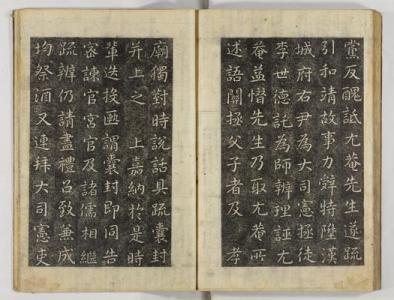 黨反醜詆尤菴先生遂疏
引和靖故事力辭特陞漢
城府右尹為大司憲拯徒
李世德託為師辨理誣尤
菴益憯先生乃取尤菴所
述語闢拯父子者及 孝
廟獨對時說話具疏囊封
并上之 上嘉納於是時
輩迭謂囊封即同告
密諫官宮官及諸儒相繼
疏辨仍請盡禮召致兼成
均祭酒又連拜大司憲吏